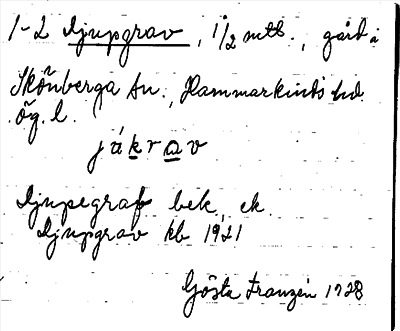 1-2 Djupgrav, 1/2 mtl., gård i
Skönberga sn., Hammarkinds hd
Ög. l.
júkrav
Djupegraf bek. ek.
Djupgrav kb 1921
Gösta Franzén 1928